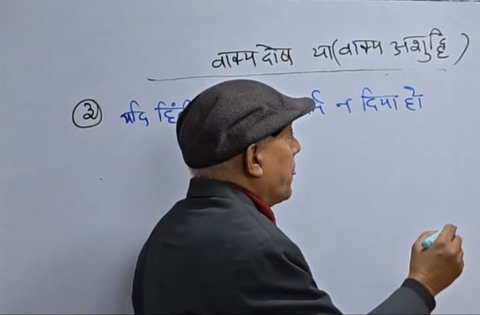 वाक्य दोष या (वाक्य अशुद्धि)
② यदि न दिया हो